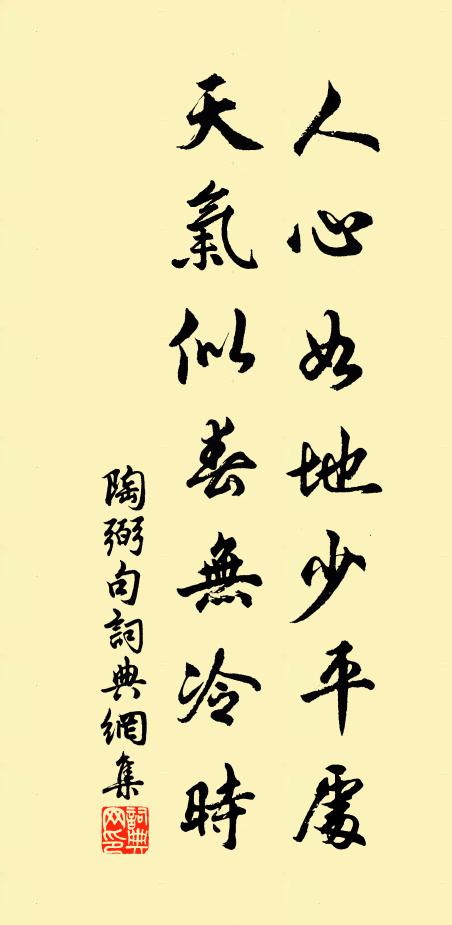 人心如地少平處
天氣似春無冷時
陶弼句詞典網集
詞典网印